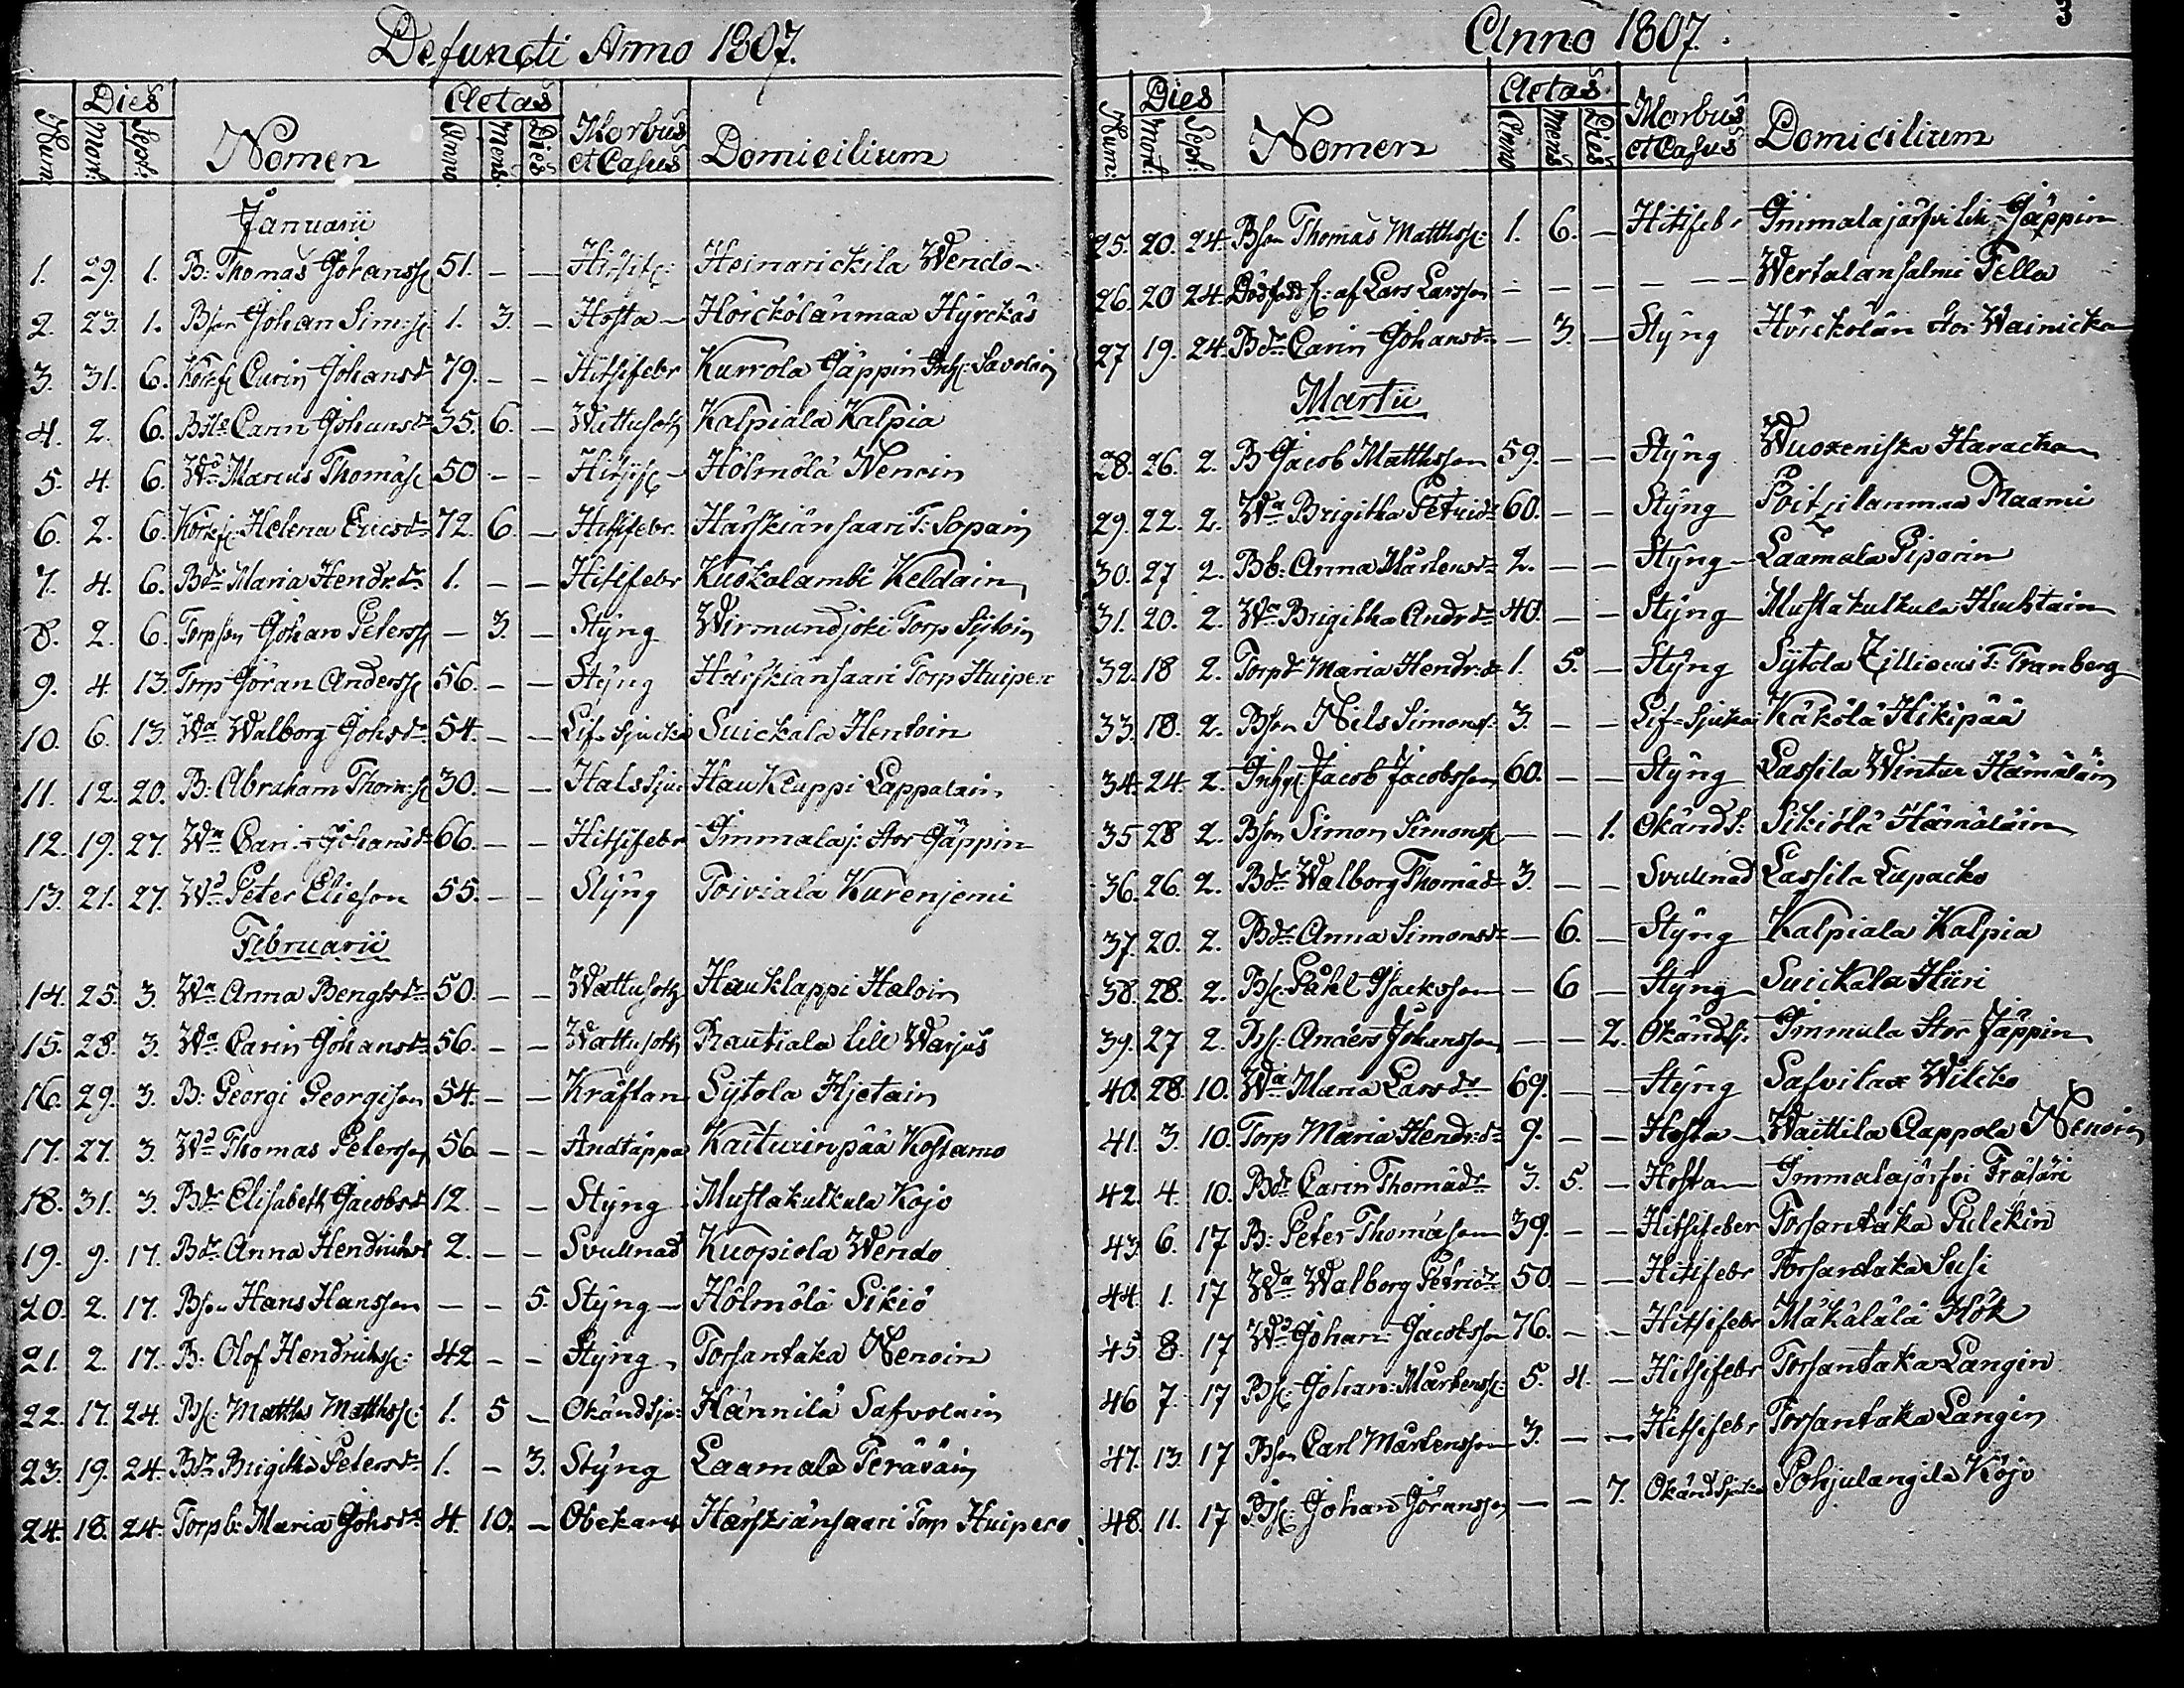 Defuncti Anno 1807.
Num: Dies Mort: Sept: Nomen Aetas Anno Mens. Dies Morbus et Casus Domicilium
Januarii
1. 29. 1. B: Thomas Johanss: 51. - - Hoinarickila Wendo
2. 23. 1. Bson Johan Sim:s: 1. 3. - Hosta Höickölänmaa Hyrckäs
3. 31. 6. Carin Johansdr 79. - - Hitsifebr Kurrola Jäppin Inh: Savolain
4. 2. 6. Carin Johansdr 35. 6. - Wattusoth Kalpiala Kalpia
5. 4. 6. Marcus Thomas: 50 - - Hölmölä Nenoin
6. 2. 6. Helena Ericsdr 72. 6. - Hitsifebr. Härskiänsaari T: Sopain
7. 4. 6. Bdr Maria Hendr:dr 1. - - Hitsifebr Kuokalambi Keldain
8. 2. 6. Torpson Johan Peterss - 3. - Styng Wirmundjoki Torp Sytoin
9. 4. 13. Torp Göran Anderss: 56. - - Styng Härskiänsaari Torp Huipero
10. 6. 13. Wa Walborg Johsdr 54. - - Lif-sjucka Suickala Hentoin
11. 12. 20. B: Abraham Thom:s: 30. - - Halssju: Haukluppi Lappalain
12. 19. 27. Wa Carin Johansdr 66. - - Hitsifebr Immalaj: Stor Jäppin
13. 21. 27. Wd Peter Elieson 55. - - Styng Toiviala Kurenjemi
Februarii
14. 25. 3. Wa Anna Bengtsdr 50. - - Wattusoth Hauklappi Haloin
15. 28. 3. Wa Carin Johansdr 56. - - Wattusoth Rautiala lill Warjus
16. 29. 3. B: Georgi Georgison 54. - - Kräftan Sytola Hjetain
17. 27. 3. Wd Thomas Peterson 56 - - Andtäppa Kaiturinpää Kostamo
18. 31. 3. Bdr Elisabeth Jacobsdr 12. - - Styng Mustakulkula Kojo
19. 9. 17. Bdr Anna Hendrichsd 2. - - Svullnad Kuopiola Wendo
20. 2. 17. Bson Hans Hansson - - 5. Styng Hölmölä Sikiö
21. 2. 17. B: Olof Hendrichss: 42 - - Styng Torsantaka Nenoin
22. 17. 24. Bs: Matths Matthss: 1. 5 - Okändsju: Hännilä Safvolain
23. 19. 24. Bdr Brigitha Petersdr 1. - 3. Styng Laamala Peräväin
24. 18. 24. Torpb: Maria Johsdr 4. 10. - Obekant Härskiänsaari Torp Huipero
Anno 1807. 3
Num: Dies Mort: Sept: Nomen Aetas Anno Mens Dies Morbus et Casus Domicilium
25. 20. 24. Bson Thomas Matthss: 1. 6. - Hitsfebr Immalajärfvi lill Jäppin
26. 20 24. Dödfödd s: af Lars Larsson - - - - - - Wertalansalmi Tella
27 19. 24. Bdr Carin Johansdr - 3. - Styng Höickölän Stor Wainicka
Martii
28. 26. 2. B Jacob Matthsson 59. - - Styng Wuoxeniska Haracka
29. 22. 2. Wa Brigitha Petridr 60. - - Styng Poitzilanmaa Naami
30. 27 2. Bb: Anna Mårtensdr 2. - - Styng Laamala Piparin
31. 20. 2. Wa Brigitha Andrdr 40. - - Styng Mustakulkula Huhtain
32. 18 2. Torpdr Maria Hendr:dr 1. 5. - Styng Sytola Zilliacus T: Tranberg
33. 18. 2. Bson Nils Simons: 3. - - Lif-sjuka Käkölä Hikipää
34. 24. 2. Inhys: Jacob Jacobsson 60. - - Styng Lassila Winter Hämäläin
35 28 2. Bson Simon Simons: - - 1. Okänd S: Sikiölä Hämäläin
36. 26. 2. Bdr Walborg Thomasdr 3. - - Svullnad Lassila Lupacko
37. 20. 2. Bdr Anna Simonsdr - 6. - Styng Kalpiala Kalpia
38. 28. 2. Bs: Påhl Isacksson - 6 - Styng Suickala Hiiri
39. 27 2. Bs: Anders Johansson - - 2. Okändsj: Immala Stor Jäppin
40. 28. 10. Wa Maria Larsdr 69. - - Styng Safvilax Wilcko
41. 3. 10. Torp Maria Hendr:dr 9. - - Hosta Waittila Aappola Nenoin
42. 4. 10. Bdr Carin Thomädr 3. 5. - Hosta Immalajärfvi Trätäri
43. 6. 17 B: Peter Thomason 39. - - Hitsifeber Torsantaka Pulckin
44. 1. 17 Wa Walborg Petridr 50. - - Hitsifebr Torsantaka Susi
45. 8. 17 Wd Johan: Jacobsson 76. - - Hitsifebr Mäkälälä Hök
46 7. 17 Bs: Johan: Mårtenss: 5. 4. - Hitsifebr Torsantaka Langin
47. 13. 17 Bson Carl Mårtensson 3. - - Hitsifebr Torsantaka Langin
48. 11. 17 Bs: Johan Göransson - - 7. Okändsjuka Pohjulangila Kojo